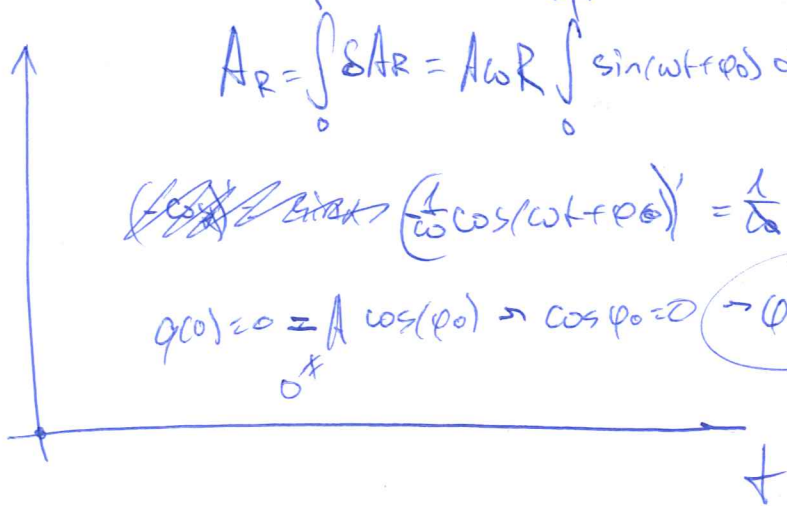 A_R = ∫₀ δA_R = AωR ∫₀ sin(ωt+φ₀)
(-1/ω cos(ωt+φ₀))' = 1/ω
q(0)=0 = A cos(φ₀) ⤳ cos φ₀=0 → φ
0 ≠
t